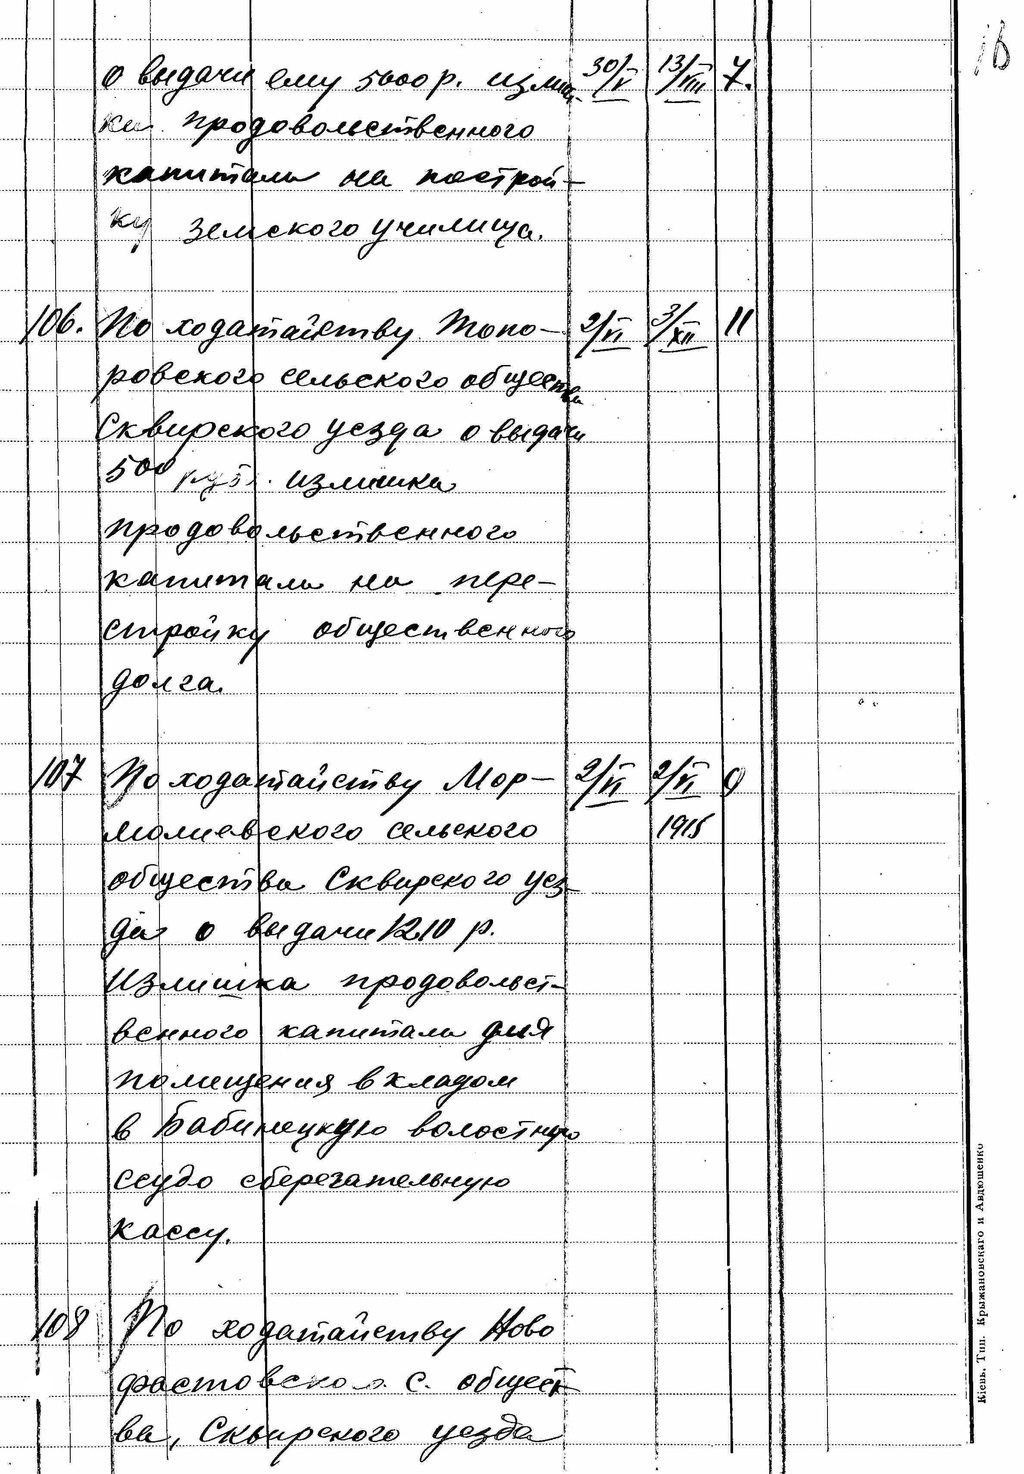 16
о выдачи ему 5000 р. излиш- 30/V 13/VIII 7.
ка продовольственного
капитала на построй-
ку земского училища.
106. По ходатайству Топо- 2/VI 3/XII 11
ровского сельского общества
Сквирского уезда о выдачи
500 рубл. излишка
продовольственного
капитала на пере-
стройку общественного
долга.
107 По ходатайству Мор- 2/VI 2/VI 9
молиевского сельского 1915
общества Сквирского уез-
да о выдачи 1210 р.
излишка продовольст-
венного капитала для
помещения вкладом
в Бабинецкую волостную
ссудо сберегательную
кассу.
108 По ходатайству Ново
фастовского с. общест
ва, Сквирского уезда
Кіевь, Тип. Крыжановскаго и Авдюшенко